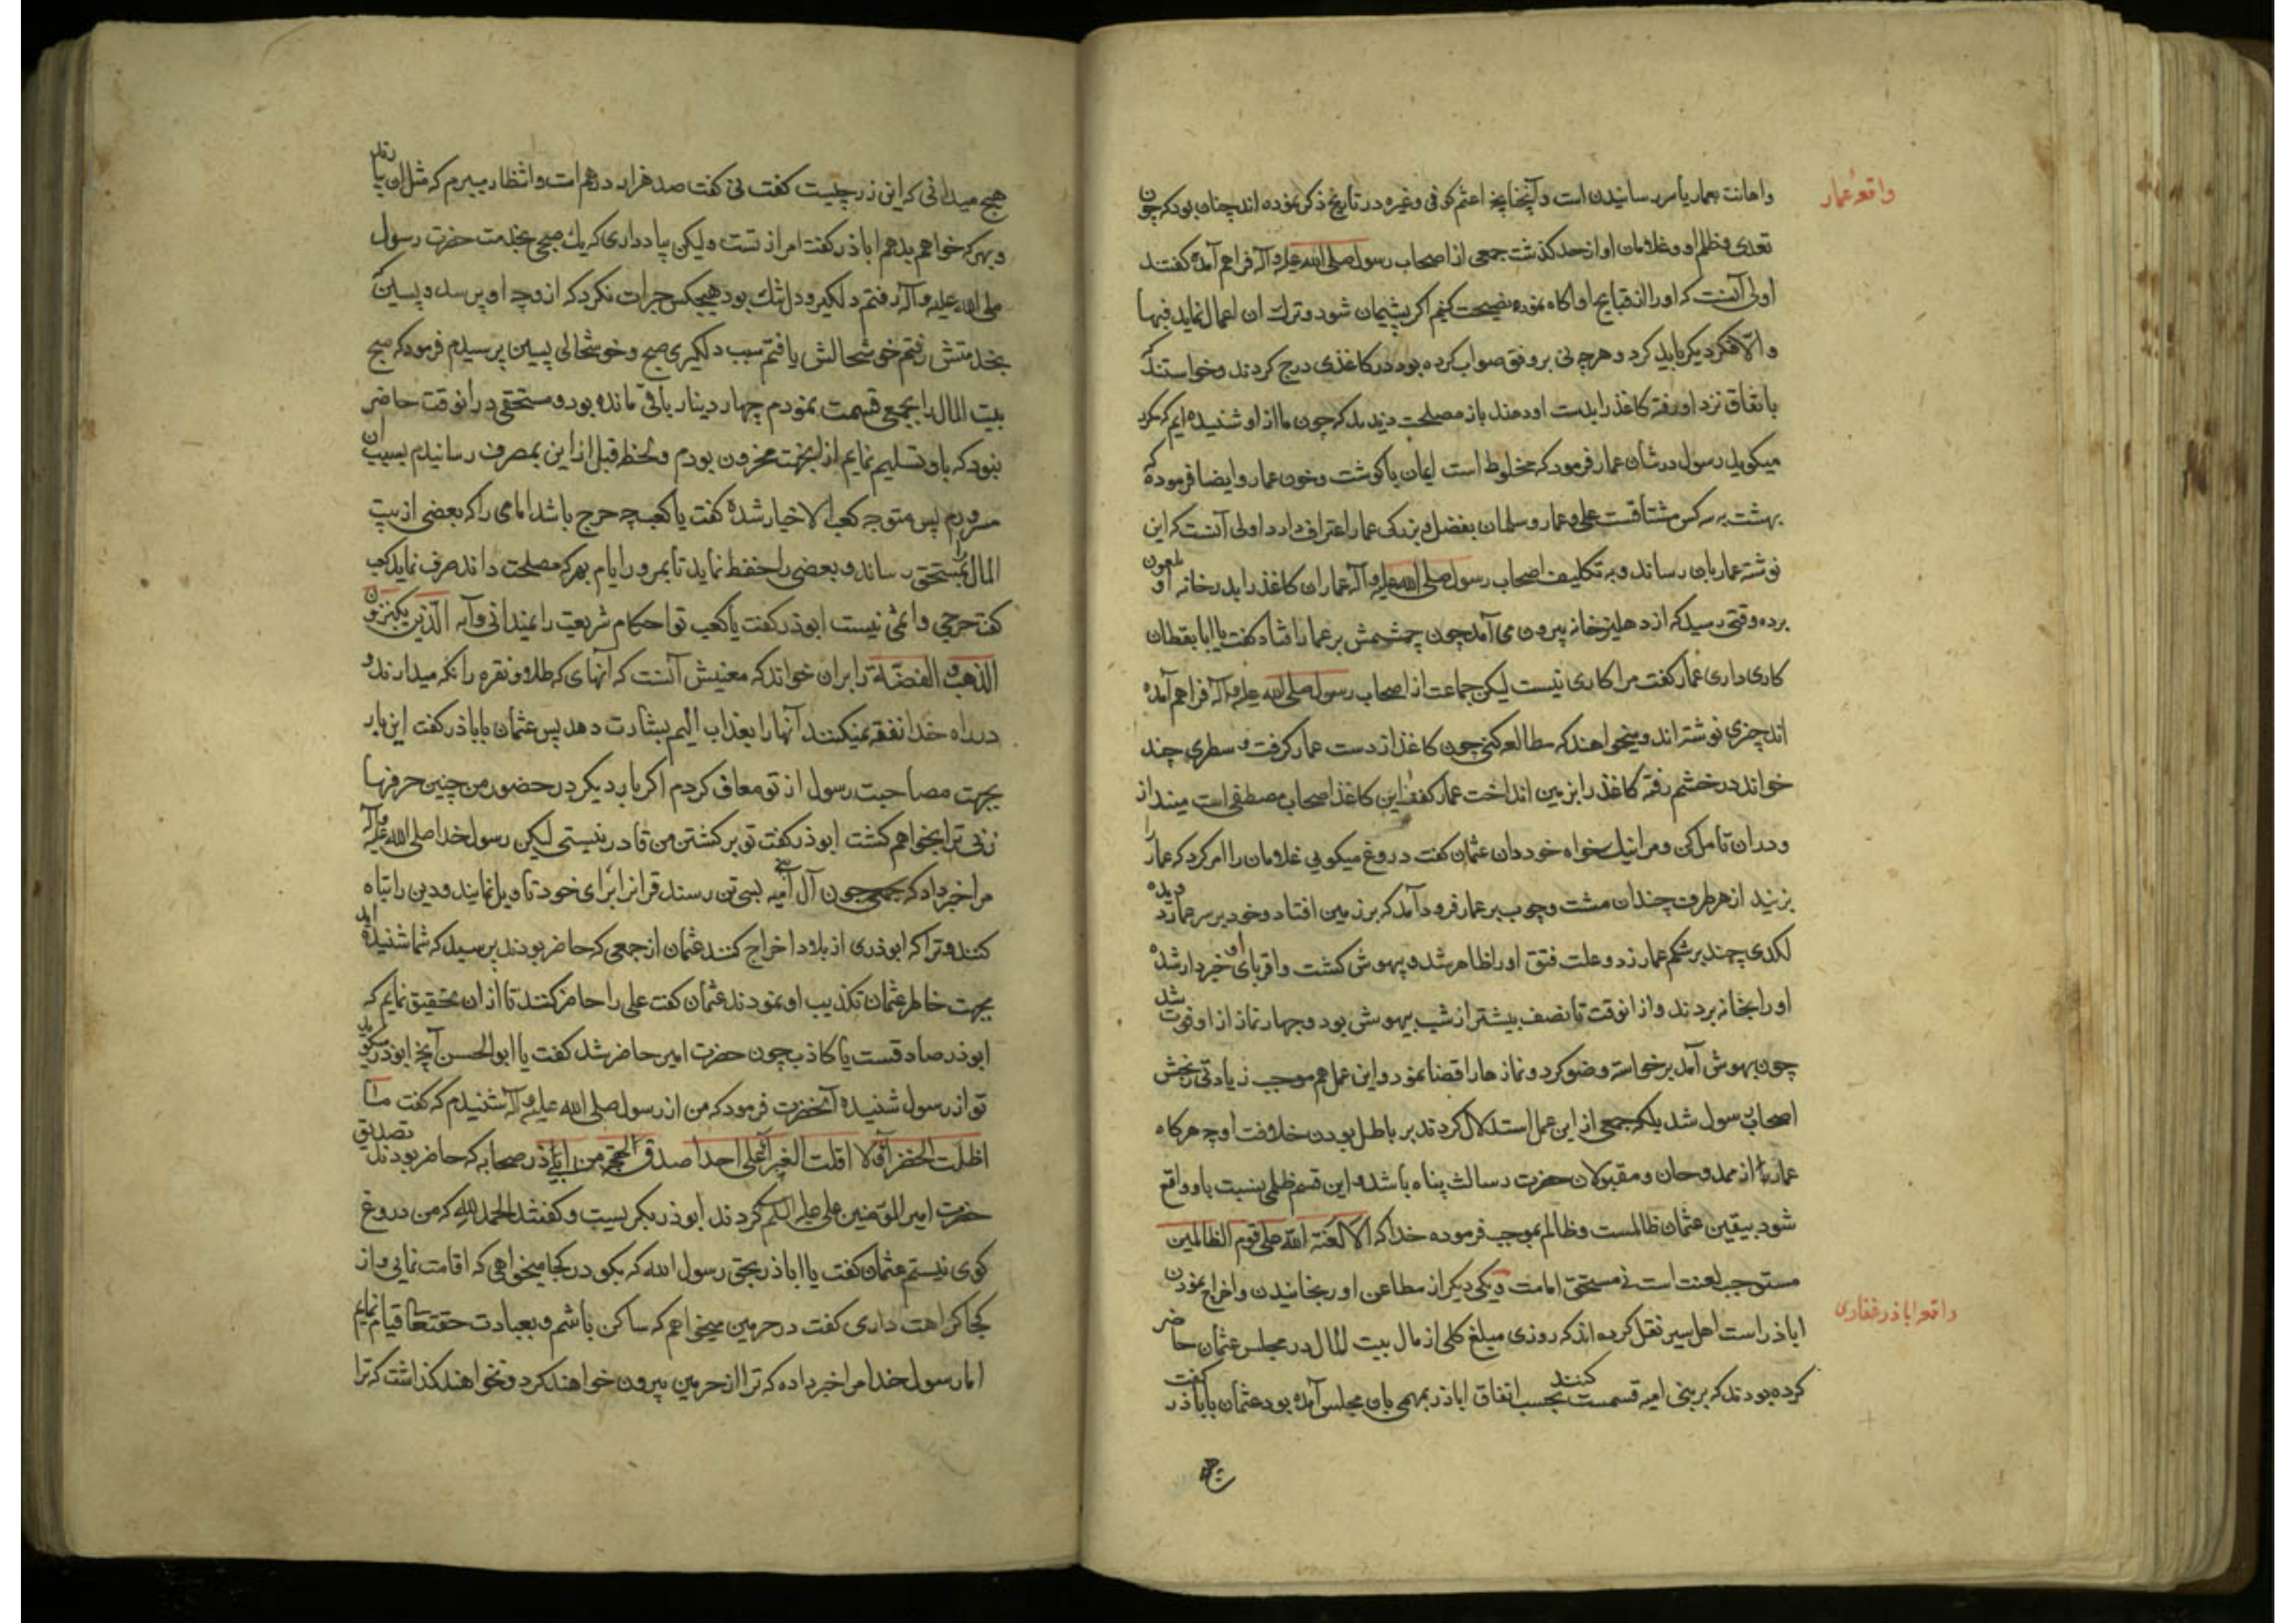 واقعۀ عمار
واهانت بعمار یاسر رسانیدن است و آنچنانچه اعثم کوفی وغیره در تاریخ ذکر نموده اند چنان بود که چون
تعدی وظلم او وغلامان او از حد کذشت جمعی از اصحاب رسول صلی الله علیه وآله فراهم آمده کفتند
اولی آنست که او را از قبایح او اکاه نموده نصیحت کنیم اکر پشیمان شود وترک ان اعمال نماید فبها
والا فکر دیکر باید کرد وهر چه نی بر وفق صواب کرده بود در کاغذی درج کردند وخواستند که
باتفاق نزد او رفته کاغذ را بدست او دهند باز مصلحت دیدند که چون ما از او شنیده ایم که مکرر
میکوید رسول در شان عمار فرمود که مخلوط است ایمان با کوشت وخون عمار وایضا فرموده که
بهشت به سه کس مشتاقست علی وعمار وسلمان بفضل وبزرکی عمار اعتراف دارد اولی آنست که این
نوشته عمار بان رساند وبه تکلیف اصحاب رسول صلی الله علیه وآله عمار ان کاغذ را بدر خانه او ملعون
برده وقتی رسید که از دهلیز خانه بیرون می آمد چون چشمش بر عمار افتاد کفت یا ابا یقظان
کاری داری عمار کفت مرا کاری نیست لیکن جماعت از اصحاب رسول صلی الله علیه وآله فراهم آمده
اند چیزی نوشته اند ومیخواهند که مطالعه کنی چون کاغذ از دست عمار کرفت وسطری چند
خواند در خشم رفته کاغذ را بزمین انداخت عمار کفت این کاغذ اصحاب مصطفی است مینداز
ودر ان تامل کن ومرا نیک خواه خود دان عثمان کفت دروغ میکویی غلامان را امر کرد که عمار را
بزنید از هر طرف چندان مشت وچوب بر عمار فرود آمد که بر زمین افتاد وخود بر سر عمار دویده
لکدی چند بر شکم عمار زد وعلت فتق او را ظاهر شد وبیهوش کشت واقربای او خبردار شده
او را بخانه بردند واز انوقت تا نصف بیشتر از شب بیهوش بود وچهار نماز از او فوت شد
چون بهوش آمد برخواسته وضو کرد ونمازها را قضا نمود واین عمل هم موجب زیادتی رنجش
اصحاب رسول شد بلکه جمعی از این عمل استدلال کردند بر باطل بودن خلافت او چه هرکاه
عمار یاسر از ممدوحان ومقبولان حضرت رسالت پناه باشد واین قسم ظلمی بنسبت باو واقع
شود بیقین عثمان ظالمست وظالم بموجب فرموده خدا که الا لعنة الله علی قوم الظالمین
مستوجب لعنت است نه مستحق امامت ویکی دیکر از مطاعن او رنجانیدن واخراج نمودن
واقعۀ اباذر غفاری
اباذر است اهل سیر نقل کرده اند که روزی مبلغ کلی از مال بیت المال در مجلس عثمان حاضر
کرده بودند که بر بنی امیه قسمت کنند بحسب اتفاق اباذر بمهمی بان مجلس آمده بود عثمان باباذر کفت
هیچ
هیچ میدانی که این زر چیست کفت نی کفت صد هزار درهم است وانتظار میبرم که مثل ان بیارند
وبهر که خواهم بدهم اباذر کفت امر از تست ولیکن بیاد داری که یک صبح بخدمت حضرت رسول
صلی الله علیه وآله رفتم دلکیر ودل تنک بود هیچکس جرات نکرد که از وجه او پرسد وپسین که
بخدمتش رفتم خوشحالش یافتم سبب دلکیری صبح وخوشحالی پسین پرسیدم فرمود که صبح
بیت المال را بجمعی قسمت نمودم چهار دینار باقی مانده بود ومستحقی در انوقت حاضر
نبود که باو تسلیم نمایم از انجهت محزون بودم ولحظه قبل از این بمصرف رسانیدم بسبب ان
مسرورم پس متوجه کعب الاخبار شده کفت یا کعب چه حرج باشد امامی را که بعضی از بیت
المال را بمستحق رساند وبعضی را حفظ نماید تا بمرور ایام بهر که مصلحت داند صرف نماید کعب
کفت حرجی واثمی نیست ابوذر کفت یا کعب تو احکام شریعت را نمیدانی وآیه الذین یکنزون
الذهب والفضة را بران خواند که معنیش آنست که آنهای که طلا ونقره را نکه میدارند و
در راه خدا نفقه نمیکنند آنها را بعذاب الیم بشارت دهد پس عثمان باباذر کفت این بار
بجهت مصاحبت رسول از تو معاف کردم اکر بار دیکر در حضور من چنین حرفها
زنی ترا بخواهم کشت ابوذر کفت تو بر کشتن من قادر نیستی لیکن رسول خدا صلی الله علیه وآله
مرا خبر داد که چون آل امیه بسی تن رسند قرانرا برای خود تاویل نمایند ودین را تباه
کنند وترا که ابوذری از بلاد اخراج کنند عثمان از جمعی که حاضر بودند پرسید که شما شنیده اید
بجهت خاطر عثمان تکذیب او نمودند عثمان کفت علی را حاضر کنند تا از ان تحقیق نمایم که
ابوذر صادقست یا کاذب چون حضرت امیر حاضر شد کفت یا ابوالحسن آنچه ابوذر میکوید
تو از رسول شنیده آنحضرت فرمود که من از رسول صلی الله علیه وآله شنیدم که کفت ما
اظلت الخضراء ولا اقلت الغبراء علی احدا صدق لهجة من ابی ذر صحابه که حاضر بودند تصدیق
حضرت امیر المؤمنین علی علیه السلم کردند ابوذر بکریست وکفتند الحمد لله که من دروغ
کوی نیستم عثمان کفت یا اباذر بحق رسول الله که بکو در کجا میخواهی که اقامت نمایی واز
کجا کراهت داری کفت در حرمین میخواهم که ساکن باشم وبعبادت حقتعالی قیام نمایم
اما رسول خدا مرا خبر داده که ترا از حرمین بیرون خواهند کرد ونخواهند کذاشت که ترا